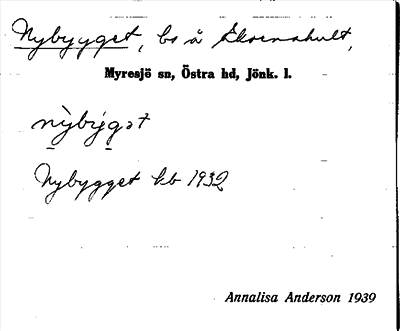 Nybygget, bs å Skornahult,
Myresjö sn, Östra hd, Jönk. l.
nỳbýgət
Nybygget kb 1932
Annalisa Anderson 1939